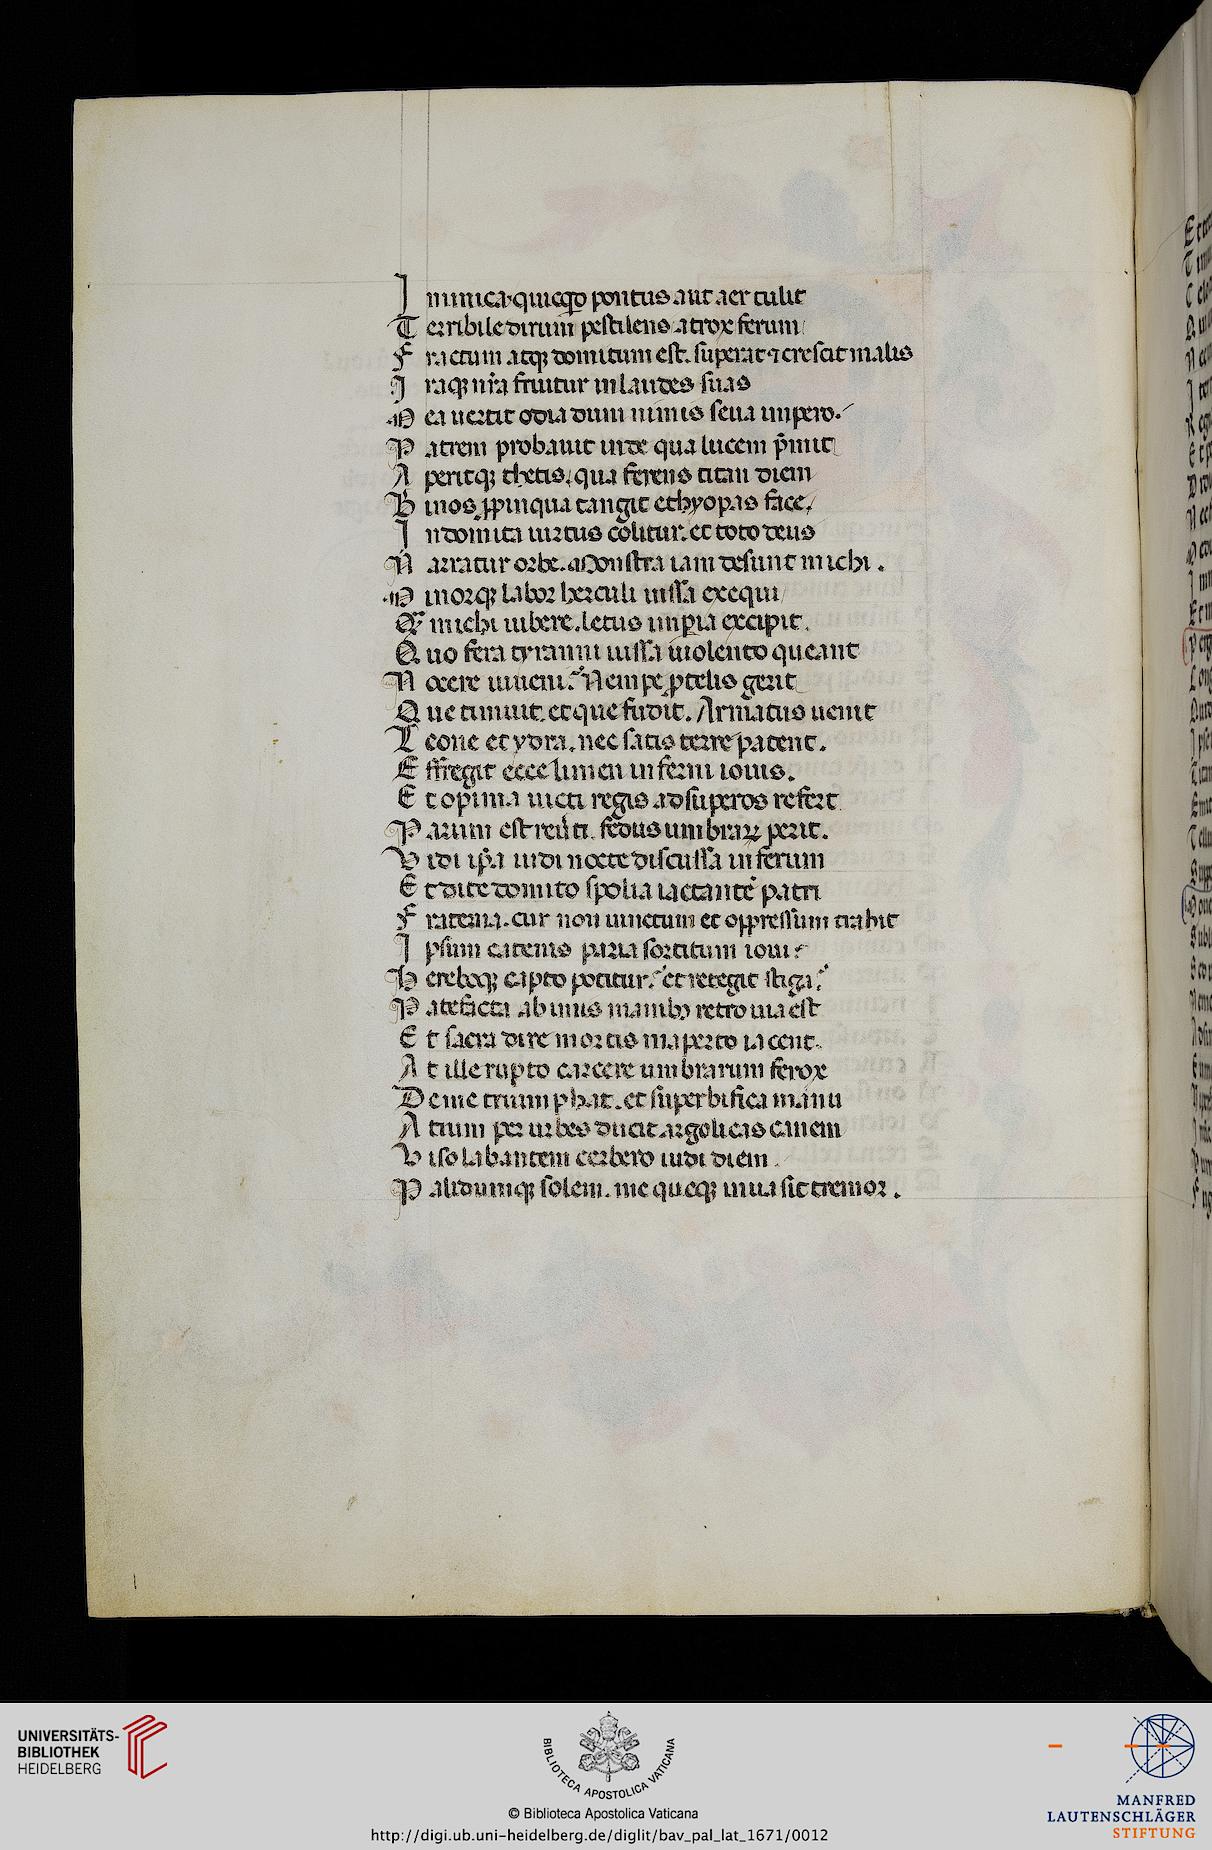 I nimica. quicq̄d pontus aut aer tulit
T erribile dirum pestilens atrox ferum
F ractum atq; domitum est. superat ⁊ crescit malis
I raq; nr̄a fruitur in laudes suas
M ea uertit odia dum nimis seua impero.
P atrem probauit inde qua lucem p̄mit
A peritq; thetis, qua ferens titan diem
B inos ꝓpinqua tangit ethyopas face.
I ndomita uirtus colitur. et toto deus
N arratur orbe. Monstra iam desunt michi.
M inorq; labor herculi iussa exequi
Q̃ michi iubere. letus imp̄ia excipit.
Q uo fera tyranni iussa uiolento queant
N ocere iuueni. Nempe ꝓ telis gerit
Q ue timuit. et que fudit. Armatus uenit
L eone et ydra. nec satis terre patent.
E ffregit ecce limen inferni iouis.
E t opima uicti regis ad superos refert
P arum est reuerti. fedus umbraꝝ perit.
V idi ip̄a uidi nocte discussa inferum
E t dite domito spolia iactante patri
F raterna. cur non uinctum et oppressum trahit
I psum catenis paria sortitum ioui
H ereboq; capto potitur. et retegit stiga.
P atefacta ab imis manibꝫ retro uia est
E t sacra dire mortis in aperto iacent.
A t ille rupto carcere umbrarum ferox
D e me triumphat. et superbifica manu
A trum per urbes ducit argolicas canem
V iso labantem cerbero uidi diem.
P alidumq; solem. me queq; inuasit tremor.
UNIVERSITÄTS-
BIBLIOTHEK
HEIDELBERG
BIBLIOTECA APOSTOLICA VATICANA
© Biblioteca Apostolica Vaticana
http://digi.ub.uni-heidelberg.de/diglit/bav_pal_lat_1671/0012
MANFRED
LAUTENSCHLÄGER
STIFTUNG